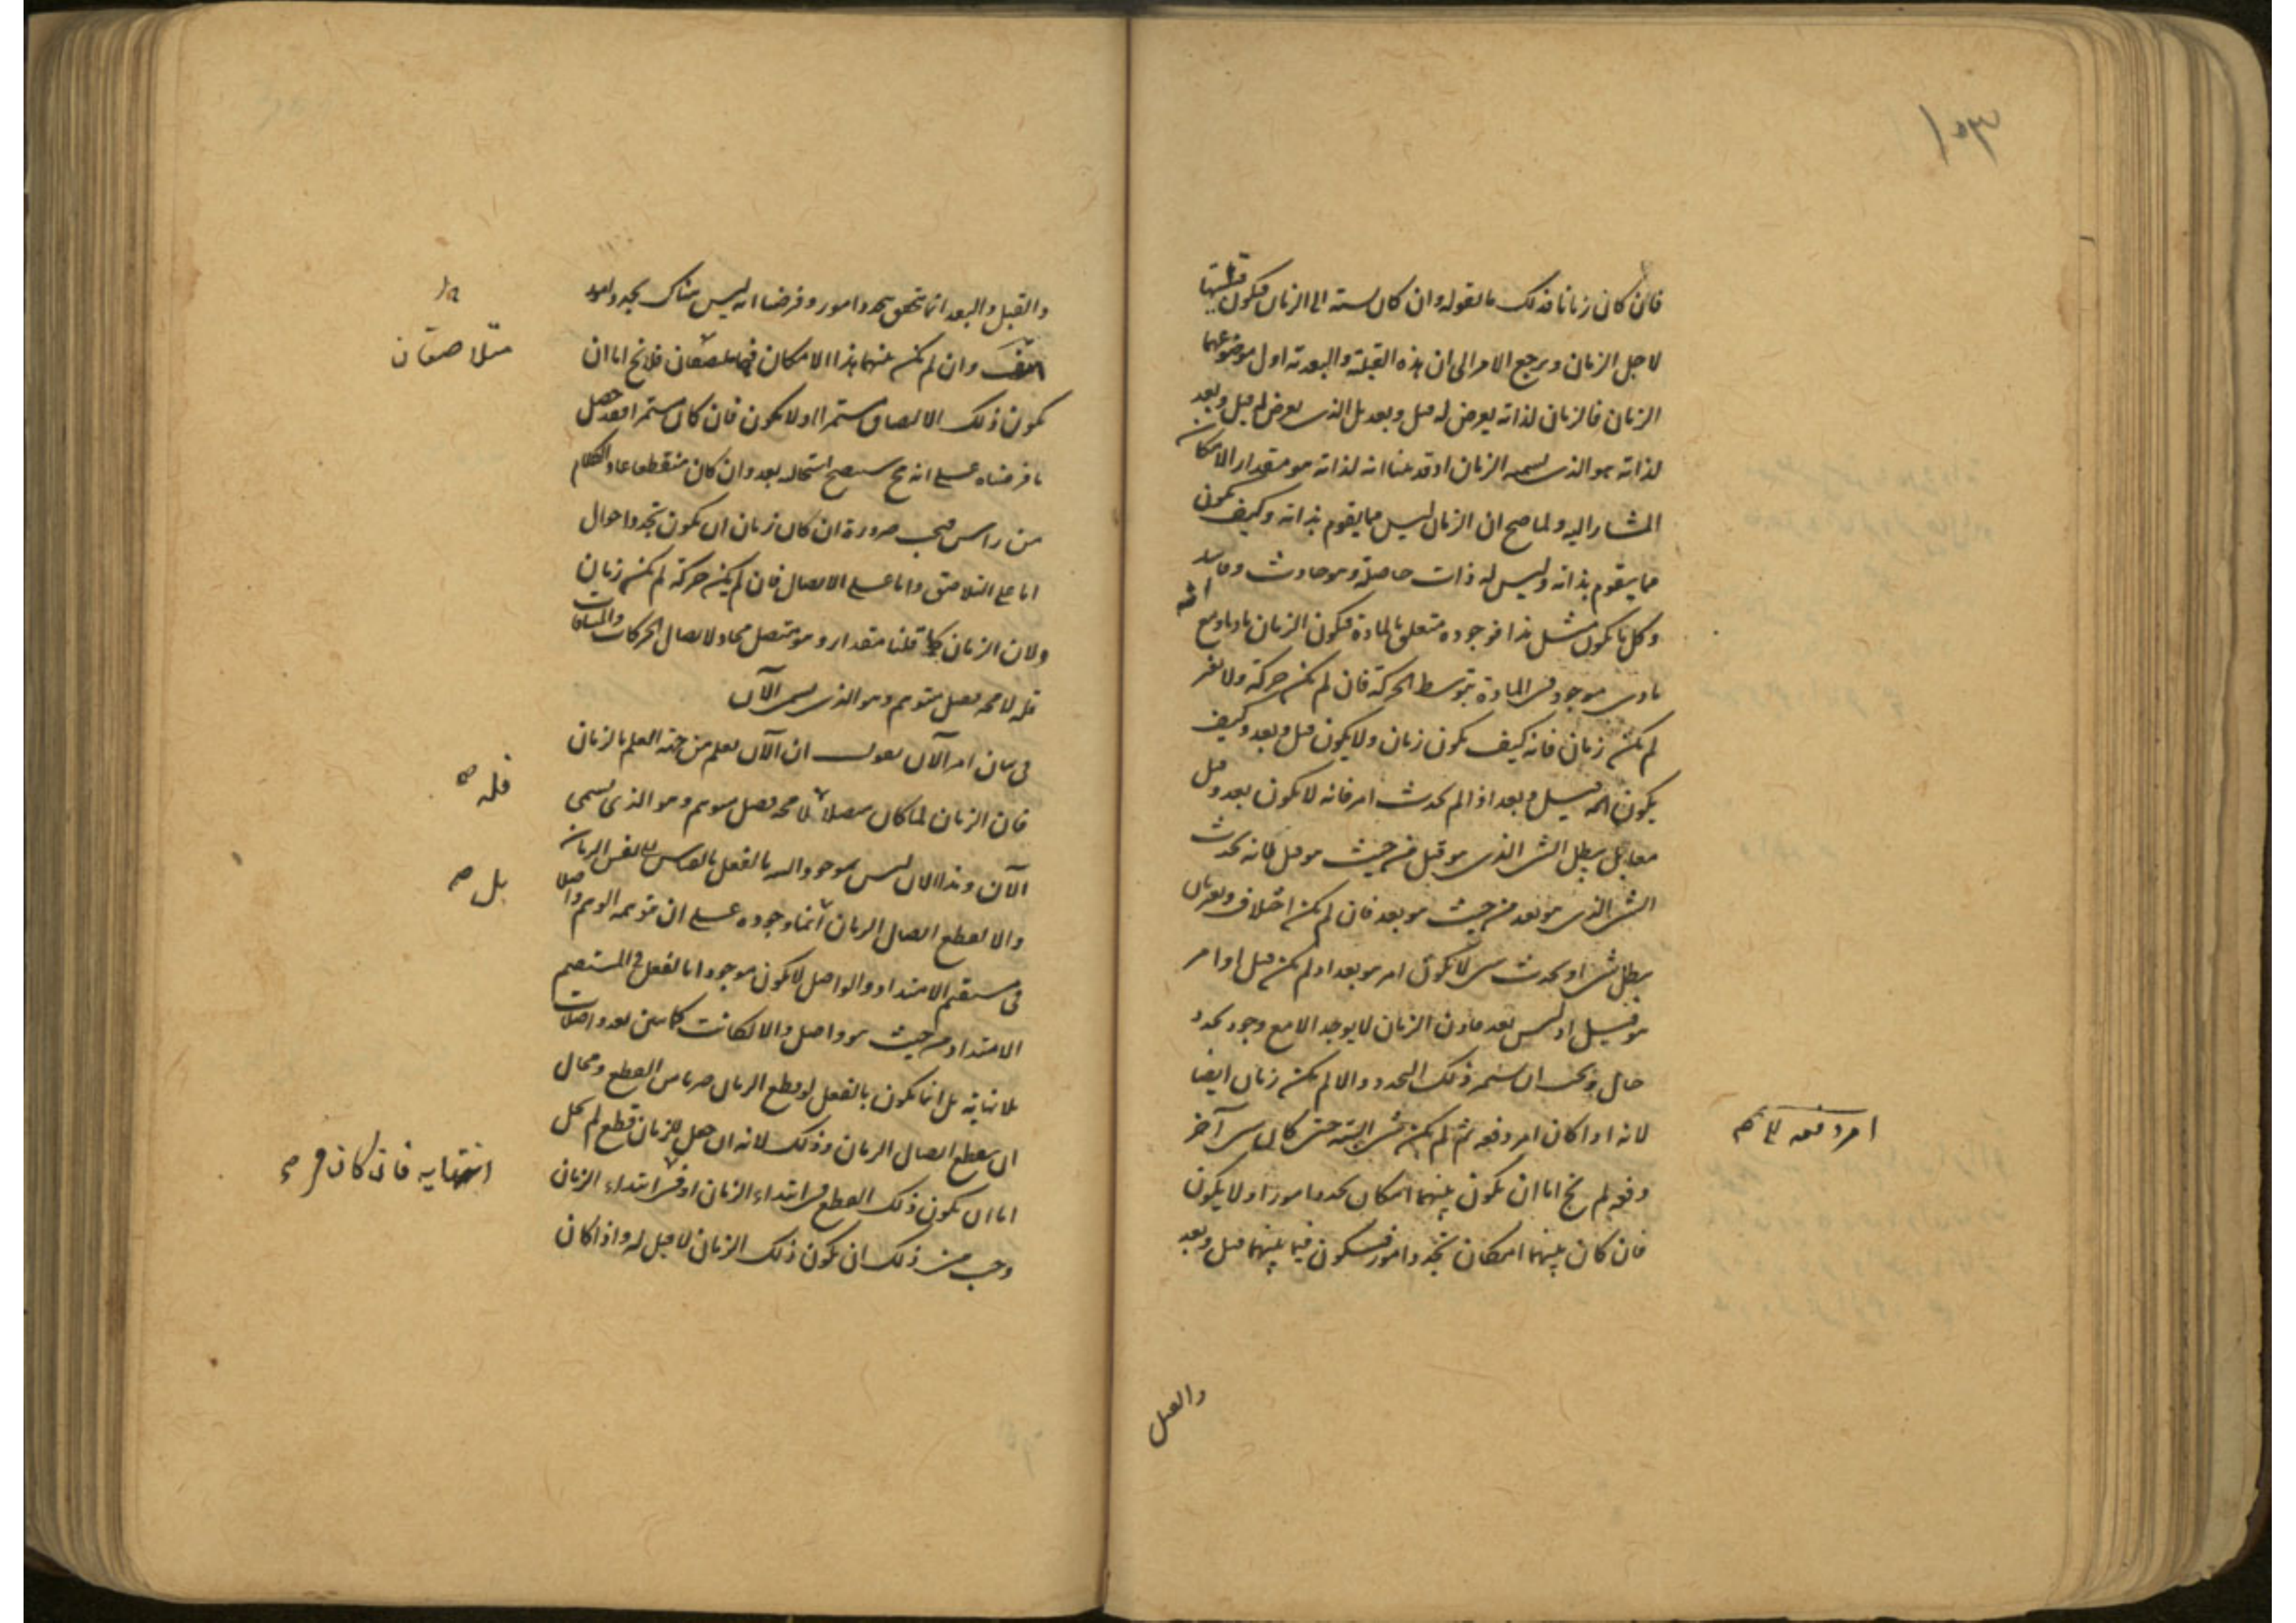 ١٥٣
فان كان زمانا فذلك ما نقوله وان كان نسبته الى الزمان فيكون قبليتها
لاجل الزمان ويرجع الامر الى ان هذه القبلية والبعدية اول موضوعهما
الزمان فالزمان لذاته يعرض له قبل وبعد بل الذى يعرض له قبل وبعد
لذاته هو الذى نسميه الزمان اذ قد بينا انه لذاته هو مقدار الامكان
المشار اليه ولما صح ان الزمان ليس مما يقوم بذاته وكيف يكون
مما يقوم بذاته وليس له ذات حاصلة وهو حادث وفاسد
وكل ما يكون مثل هذا فوجوده متعلق بالمادة فيكون الزمان ماديا ومع انه
مادى موجود فى المادة بتوسط الحركة فان لم يكن حركة ولا تغير
لم يكن زمان فانه كيف يكون زمان ولا يكون قبل وبعد وكيف
يكون قبل وبعد اذا لم يحدث امر فامر فانه لا يكون بعد وقبل
معا بل يبطل الشئ الذى هو قبل من حيث هو قبل لانه يحدث
الشئ الذى هو بعد من حيث هو بعد فان لم يكن اختلاف وتغير بان
يبطل شئ او يحدث شئ لا يكون امر هو بعد اذ لم يكن قبل او امر
هو قبل اذ ليس بعد فاذن الزمان لا يوجد الا مع وجود تجدد
حال ويجب ان يستمر ذلك التجدد والا لم يكن زمان ايضا
لانه اذا كان امر دفعة ثم لم يكن شئ البتة حتى كان شئ آخر
دفعة لم يخ اما ان يكون بينهما امكان تجدد امور او لا يكون
فان كان بينهما امكان تجدد امور فيكون فيما بينهما قبل وبعد
امر دفعة
والقبل
والقبل والبعد انما يتحقق بتجدد امور وفرضنا انه ليس هناك تجدد امور
هف وان لم يكن بينهما هذا الامكان فهما متلاصقان فلا يخ اما ان
يكون ذلك الالتصاق مستمرا او لا يكون فان كان مستمرا فقد حصل
ما فرضناه على انه مح سيصح استحالته بعد وان كان منقطعا عاد الكلام
من راس فيجب ضرورة ان كان زمان ان يكون تجدد احوال
اما على التلاصق واما على الاتصال فان لم يكن حركة لم يكن زمان
ولان الزمان كما قلنا مقدار وهو متصل محاذ لاتصال الحركات والمسافات
فله لا محة فصل متوهم وهو الذى يسمى الآن
فى بيان امر الآن نقول ان الآن يعلم من جهة العلم بالزمان
فان الزمان لما كان متصلا لا محة فصل متوهم وهو الذى يسمى
الآن وهذا الآن ليس موجودا البتة بالفعل بالقياس الى نفس الزمان
والا لقطع اتصال الزمان انما وجوده على ان يتوهمه الوهم واصلا
فى مستقيم الامتداد والواصل لا يكون موجودا بالفعل فى المستقيم
الامتداد من حيث هو واصل والا لكانت كما سنبين بعد واصلات
بلا نهاية بل انما يكون بالفعل لو قطع الزمان ضربا من القطع ومحال
ان يقطع اتصال الزمان وذلك لانه ان جعل للزمان قطع لم يخل
اما ان يكون ذلك القطع فى ابتداء الزمان او فى ابتداء الزمان
وجب من ذلك ان يكون ذلك الزمان لا قبل له واذا كان
متلاصقان
فله صح
بل صح
انتهايه فان كان فى صح